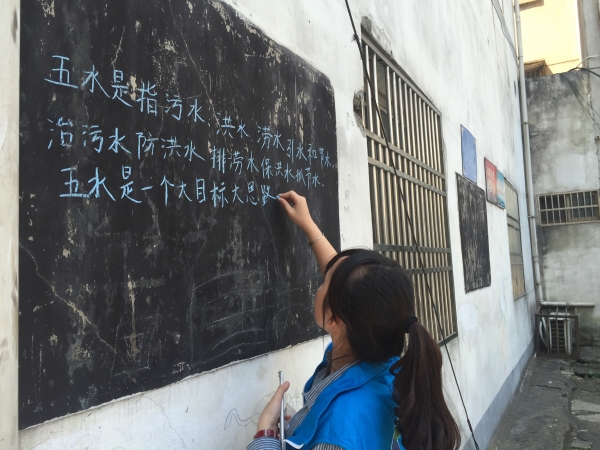 五水是指污水、洪水、涝水、引水和节水。
治污水防洪水、排涝水保洪水抓节水。
五水是一个大目标大思路